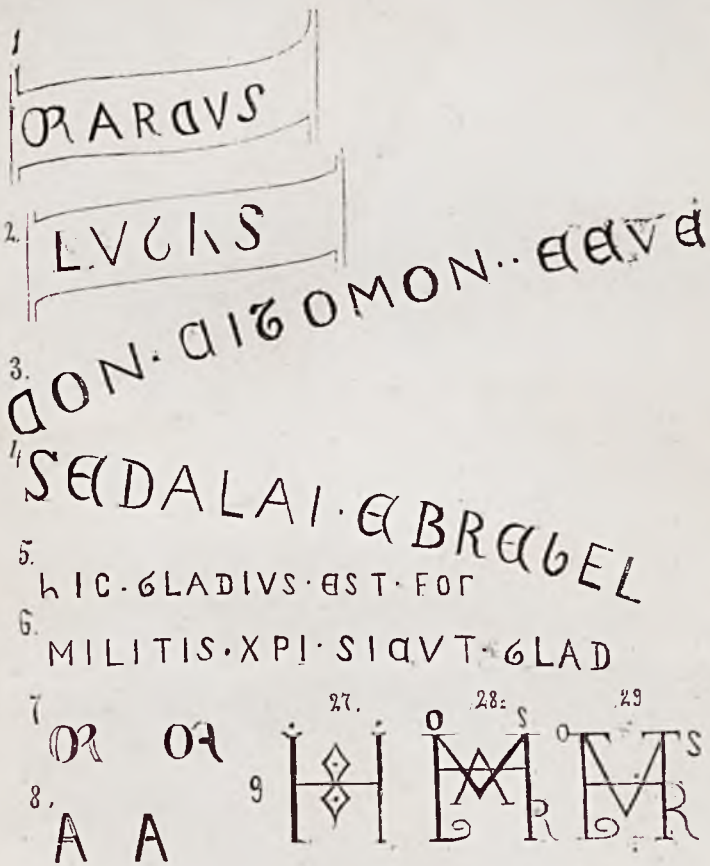 1
MARCVS
2. LVCAS
3. CON · CITOMON ·· EEVE
4. SEDALAI · EBREGEL
5. hIC · GLADIVS · EST · FOr
6. MILITIS · XPI · SICVT · GLAD
7 M M
8. A A
9 27. 28: 29
O S O S
R R